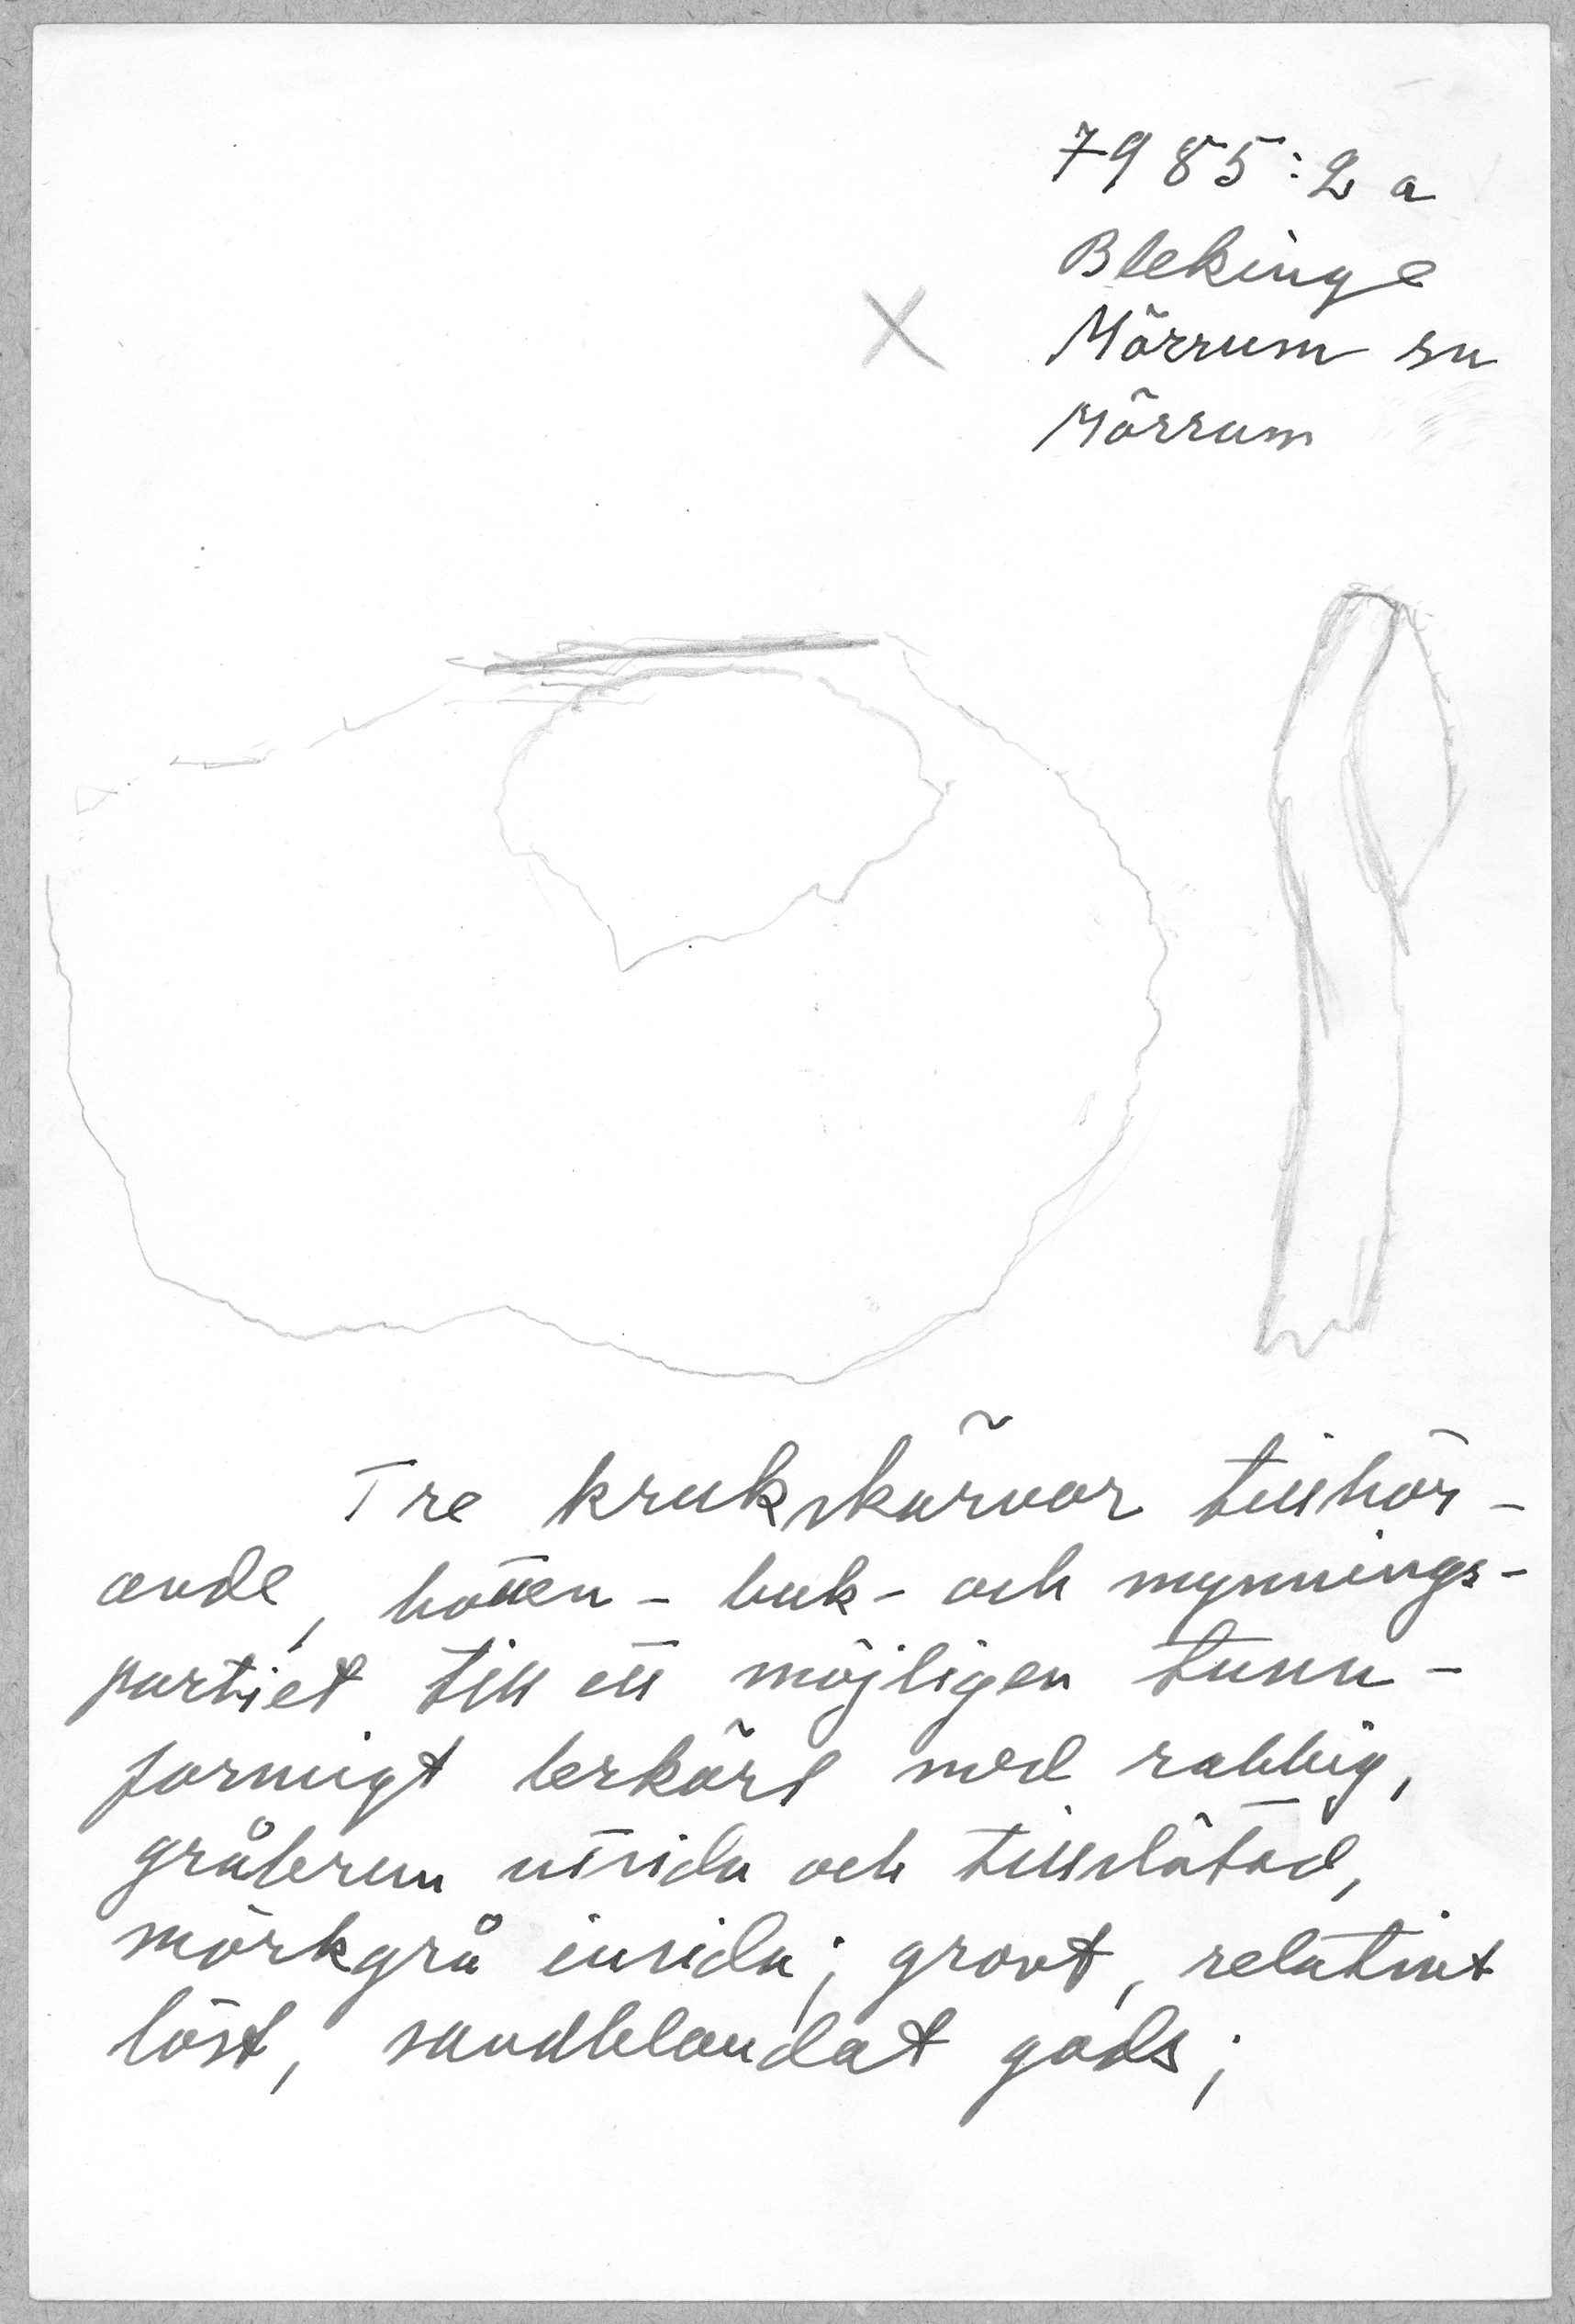 7985:2 a
Blekinge
Mörrum sn
Mörrum
X
Tre krukskärvor tillhör-
ande, botten- buk- och mynnings-
partiet till ett möjligen tunn-
formigt lerkärl med rabbig,
gråbrun utsida och tillslätad,
mörkgrå insida; grovt, relativt
löst, sandblandat gods;